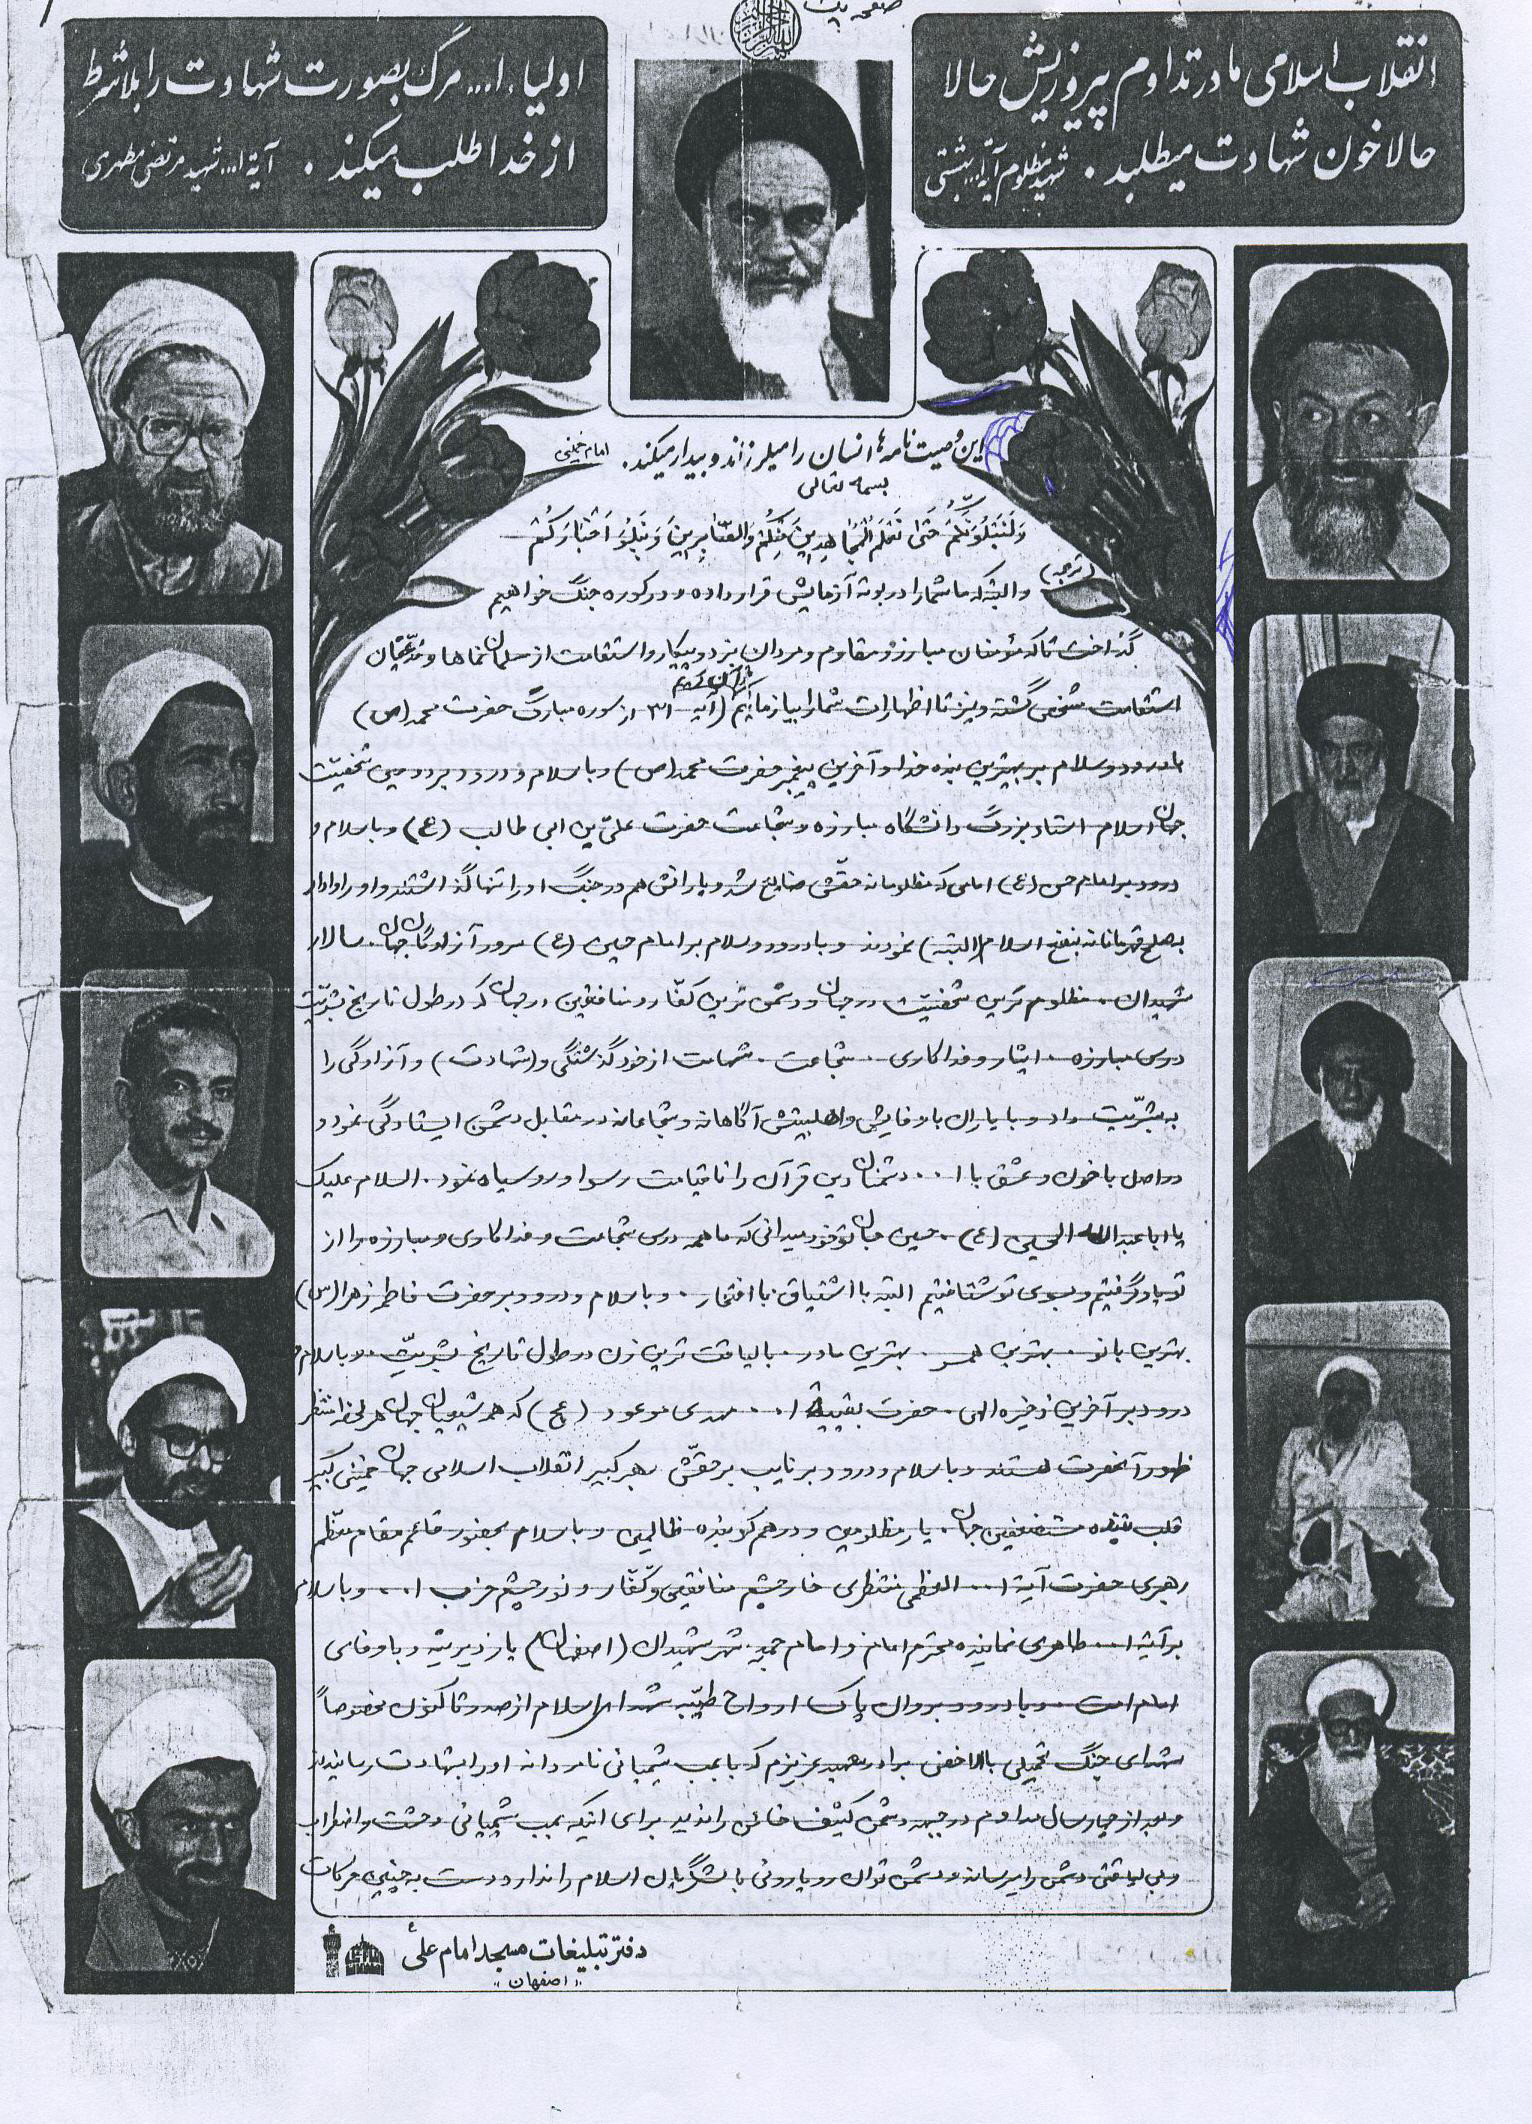 صفحه یک
انقلاب اسلامی ما در تداوم پیروزیش حالا
حالا خون شهادت میطلبد. شهید مظلوم آیة ا... بهشتی
اولیاء ا... مرگ بصورت شهادت را بلا شرط
از خدا طلب میکند. آیة ا... شهید مرتضی مطهری
این وصیت نامه ها انسان را میلرزاند و بیدار میکند. امام خمینی
بسمه تعالی
وَلَنَبْلُوَنَّكُمْ حَتّىٰ نَعْلَمَ الْمُجاهِدينَ مِنْكُمْ وَالصّابِرينَ وَ نَبْلُوَ اَخْبارَكُمْ
(ترجمه) و البته که ما شما را در بوته آزمایش قرار داده و در کوره جنگ خواهیم
گداخت تا که مؤمنان مبارز و مقاوم و مردان نبرد و پیکار و استقامت از مسلمان نماها و مدّعیان
استقامت مشخص گشته و نیز تا اظهارات شما را بیازمائیم (آیه ۳۱ از سوره مبارک حضرت محمد (ص) قرآن کریم
با درود و سلام بر بهترین بنده خدا و آخرین پیغمبر حضرت محمد (ص) و با سلام و درود بر دومین شخصیّت
جهان اسلام استاد بزرگ دانشگاه مبارزه و شجاعت حضرت علیّ بن ابی طالب (ع) و با سلام و
درود بر امام حسن (ع) امامی که مظلومانه حقّش ضایع شد و یارانش هم در جنگ او را تنها گذاشتند و او را وادار
به صلح قهرمانانه بنفع اسلام (البته) نمودند و با درود و سلام بر امام حسین (ع) سرور آزادگان جهان. سالار
شهیدان. مظلوم ترین شخصیّت در جهان و دشمن ترین کفّار و منافقین در جهان که در طول تاریخ بشریّت
درس مبارزه. ایثار و فداکاری. شجاعت. شهامت از خود گذشتگی و (شهادت) و آزادگی را
به بشرّیت داد و با یاران با وفایش و اهلبیتش آگاهانه و شجاعانه در مقابل دشمن ایستادگی نمود و
در اصل با خون و عشق با ا... دشمنان دین قرآن را تا قیامت رسوا و رو سیاه نمود. السلام علیک
یا ابا عبد الله الحسین (ع). حسین جان تو خود میدانی که ما همه درس شجاعت و فداکاری و مبارزه را از
تو یاد گرفتیم و بسوی تو شتافتیم البته با اشتیاق. با افتخار. و با سلام و درود بر حضرت فاطمه زهرا (س)
بهترین بانو. بهترین همسر. بهترین مادر. با لیاقت ترین زن در طول تاریخ بشریّت. و با سلام و
درود بر آخرین ذخیره الهی. حضرت بقیة ا... مهدی موعود (عج) که همه شیعیان جهان هر لحظه منتظر
ظهور آنحضرت هستند و با سلام و درود بر نایب بر حقّش رهبر کبیر انقلاب اسلامی جهان خمینی کبیر
قلب تپنده مستضعفین جهان. یار مظلومین و در هم کوبنده ظالمین و با سلام بحضور قائم مقام معظّم
رهبری حضرت آیة ا... العظمی منتظری خار چشم منافقین و کفّار و نور چشم حزب ا... و با سلام
بر آیة ا... طاهری نماینده محترم امام و امام جمعه شهر شهیدان (اصفهان) یار دیرینه و با وفای
امام امت. و با درود بر روان پاک ارواح طیّبه شهدای اسلام از صدر تا کنون مخصوصاً
شهدای جنگ تحمیلی بالاخص برادر عزیزم که با بمب شیمیائی نامردانه او را بشهادت رسانیدند
و بعد از چهار سال مداوم در جبهه دشمن کثیف خائن را ندید برای اینکه بمب شیمیائی وحشت و اضطراب
و بی لیاقتی دشمن را میرساند و دشمن توان رویاروئی با لشگریان اسلام را ندارد و دست به چنین حرکات
دفتر تبلیغات مسجد امام علی
«اصفهان»